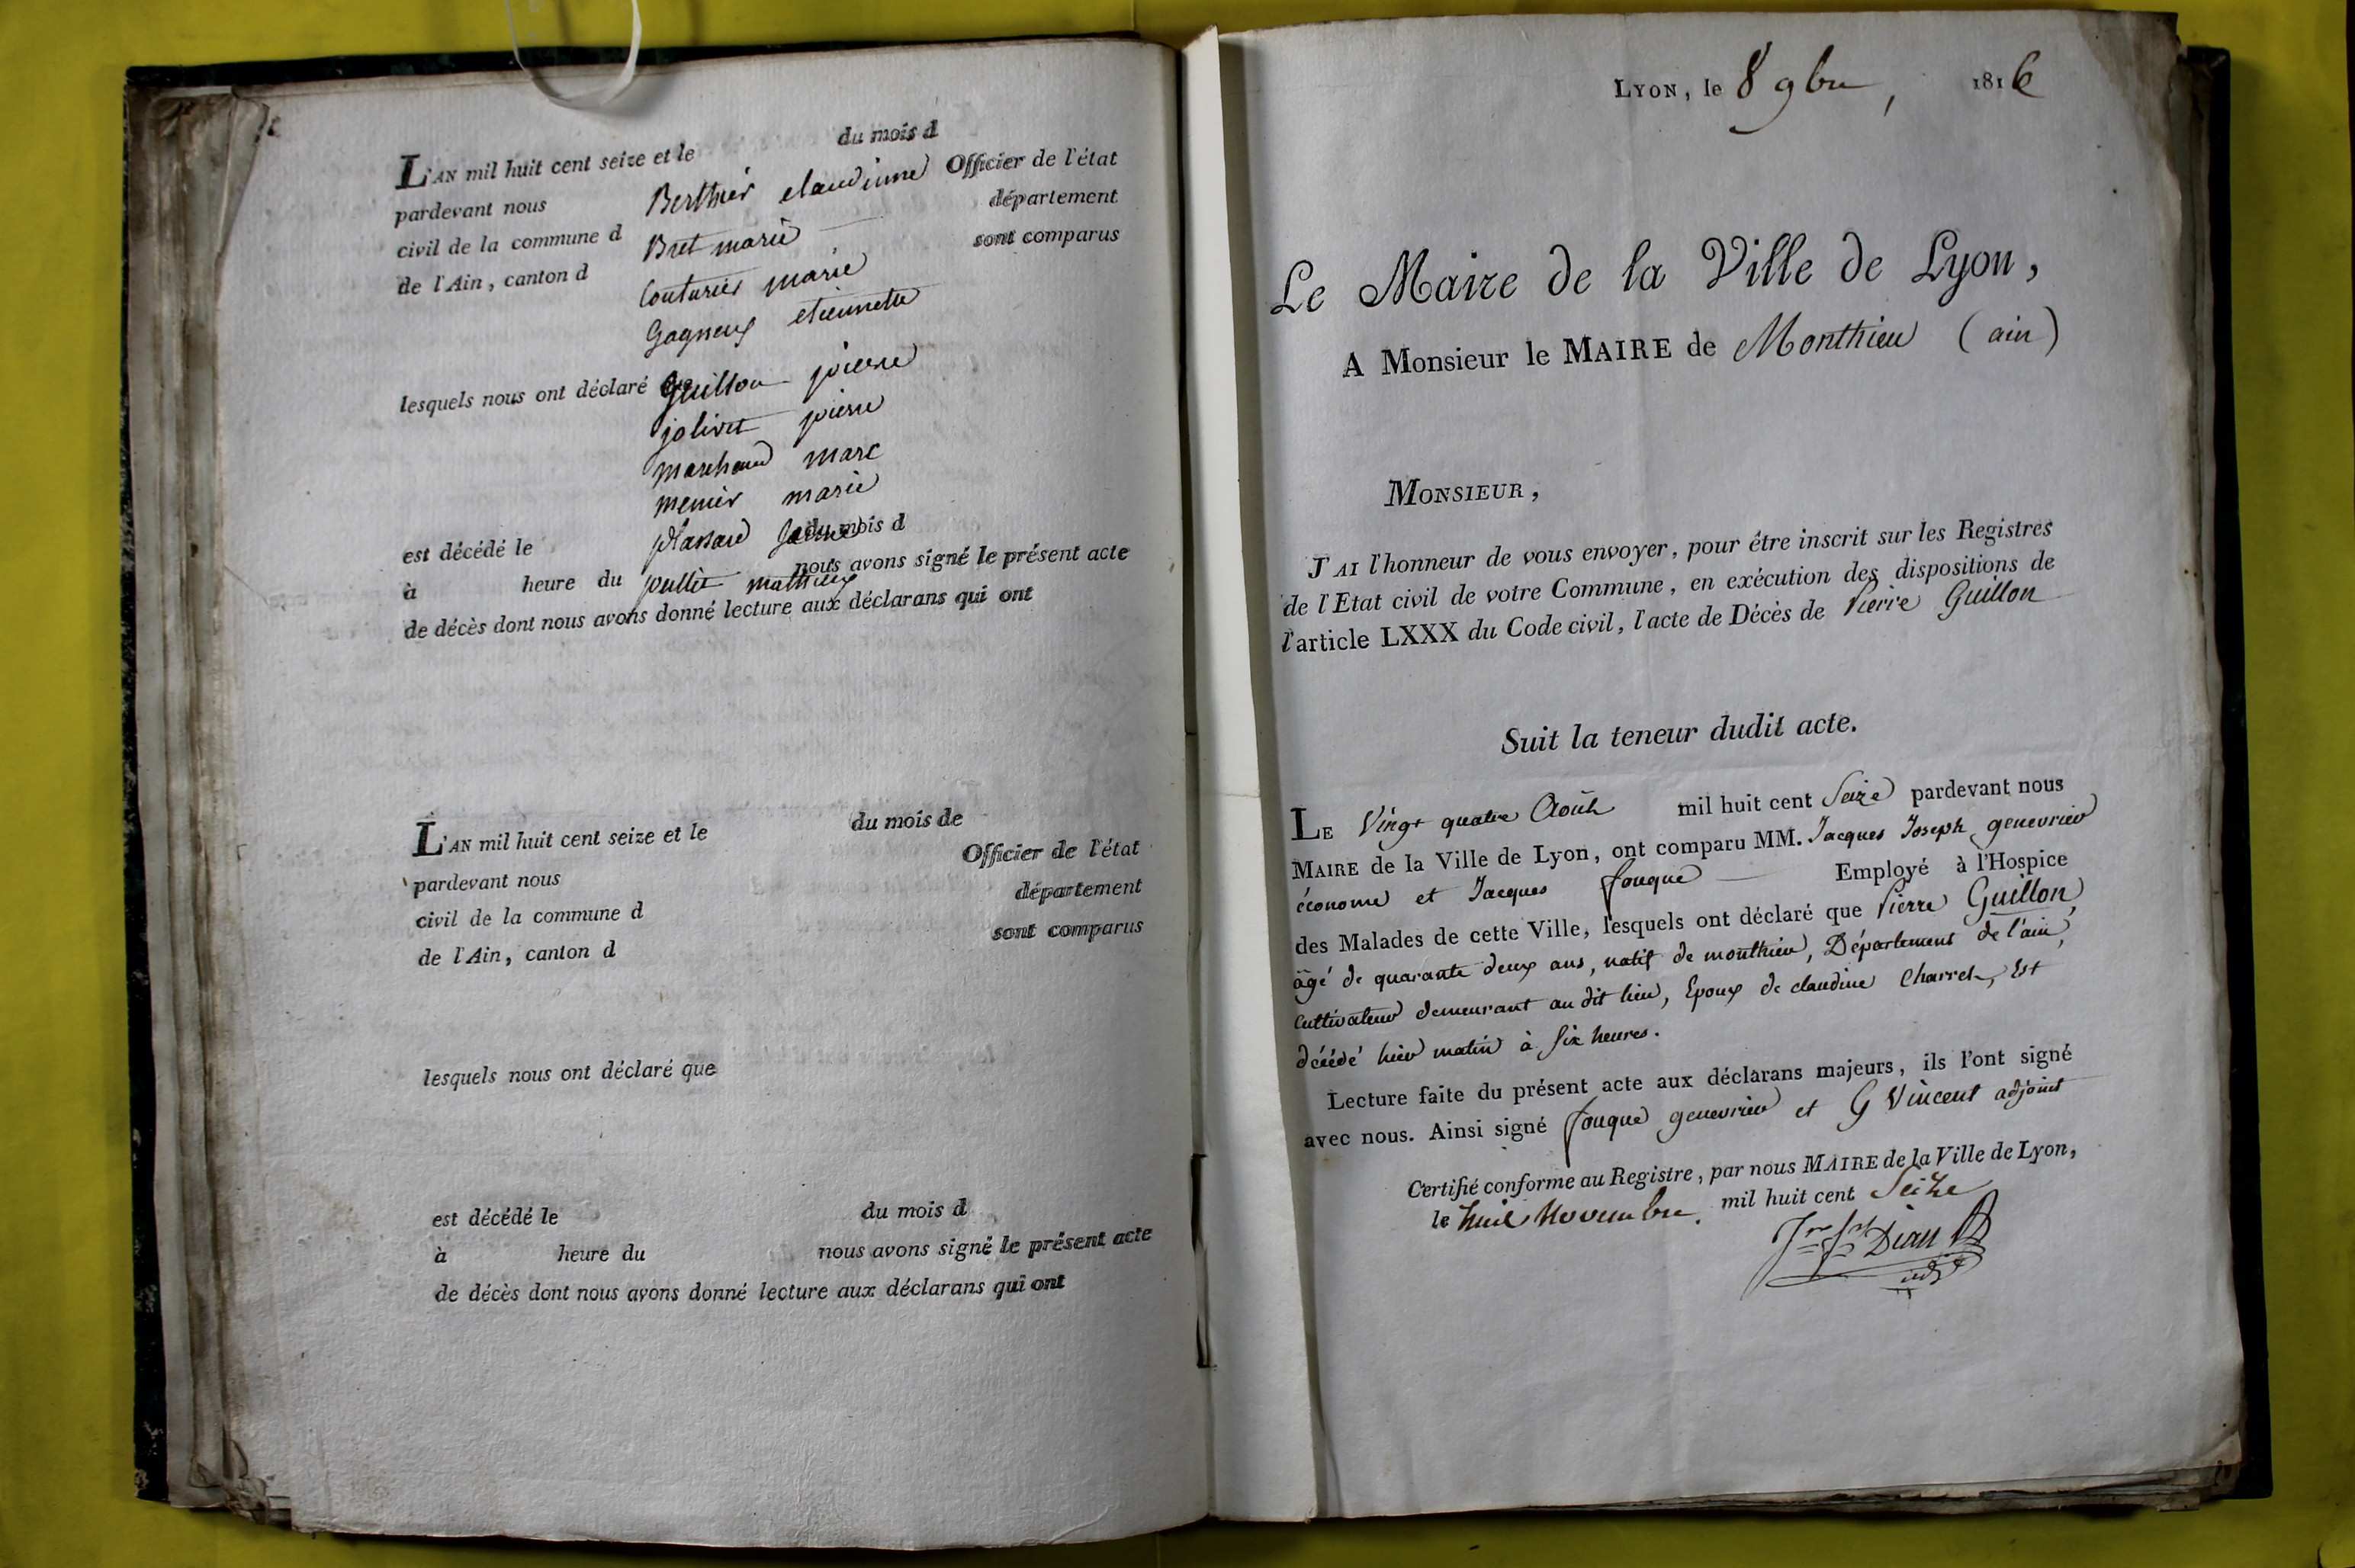 L'AN mil huit cent seize et le du mois d
pardevant nous Berthier claudinne Officier de l'état
civil de la commune d Bret marie département
de l'Ain, canton d couturier marie sont comparus
Gagneux etiennette
lesquels nous ont déclaré que Guillon pierre
jolivet pierre
marchand marc
menier marie
est décédé le plassard du mois d
à heure du pullit mathieux nous avons signé le présent acte
de décès dont nous avons donné lecture aux déclarans qui ont
L'AN mil huit cent seize et le du mois de
pardevant nous Officier de l'état
civil de la commune d département
de l'Ain, canton d sont comparus
lesquels nous ont déclaré que
est décédé le du mois d
à heure du nous avons signé le présent acte
de décès dont nous avons donné lecture aux déclarans qui ont
LYON, le 8 9bre, 1816
Le Maire de la Ville de Lyon,
A Monsieur le MAIRE de Monthieu (ain)
MONSIEUR,
J'AI l'honneur de vous envoyer, pour être inscrit sur les Registres
de l'Etat civil de votre Commune, en exécution des dispositions de
l'article LXXX du Code civil, l'acte de Décès de Pierre Guillon
Suit la teneur dudit acte.
LE Vingt quatre Août mil huit cent Seize pardevant nous
MAIRE de la Ville de Lyon, ont comparu MM. Jacques Joseph genevrier
économe et Jacques fouque Employé à l'Hospice
des Malades de cette Ville, lesquels ont déclaré que Pierre Guillon,
âgé de quarante deux ans, natif de monthieu, Département de l'ain,
cultivateur demeurant au dit lieu, Epoux de claudine Charret, Est
décédé hier matin à six heures.
Lecture faite du présent acte aux déclarans majeurs, ils l'ont signé
avec nous. Ainsi signé fouque genevrier et G Vincent adjoint
Certifié conforme au Registre, par nous MAIRE de la Ville de Lyon,
le huit Novembre, mil huit cent Seize